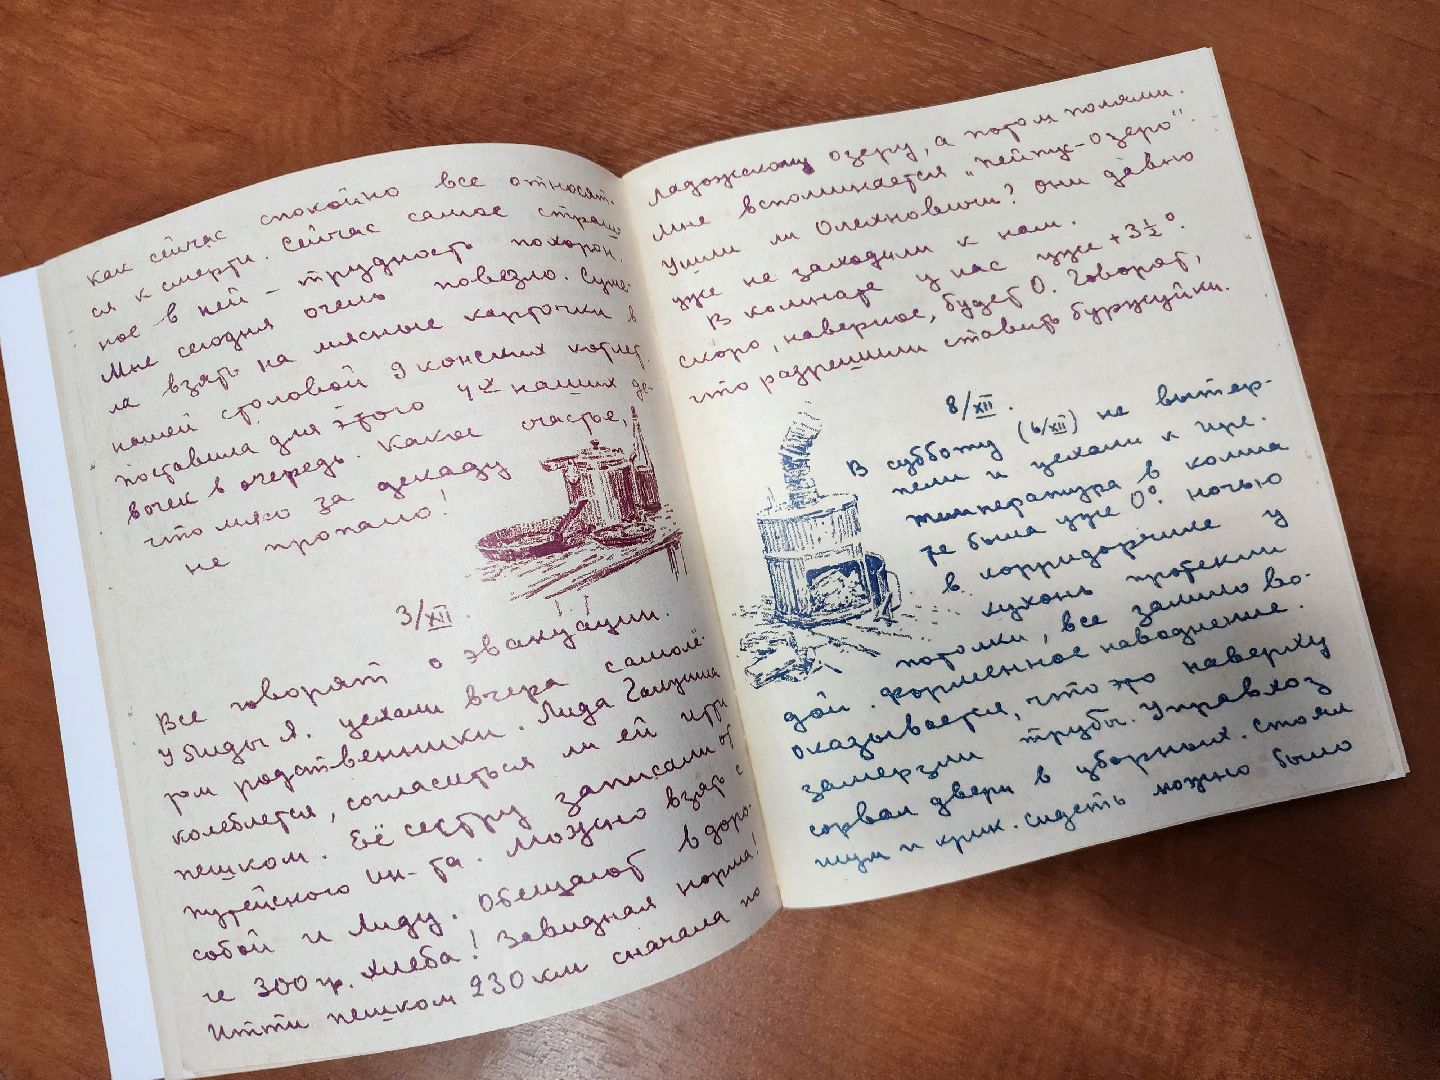 как сейчас спокойно все относят-
ся к смерти. Сейчас самое страш
ное в ней – трудность похорон.
Мне сегодня очень повезло. Суме-
ла взять на мясные карточки в
нашей столовой 9 конских котлет.
поставила для этого 4х наших де-
вочек в очередь. Какое счастье,
что мясо за декаду
не пропало!
3/XII.
Все говорят о эвакуации.
У Лиды Я. уехали вчера самолё-
том родственники. Лида Галунина
колеблется, согласиться ли ей итти
пешком. Её сестру записали от
путейского ин-та. Можно взять с
собой и Лиду. Обещают в доро-
ге 300 гр. хлеба! Завидная норма!
Итти пешком 230 км сначала по
Ладожскому озеру, а потом полями.
Мне вспоминается „Пейпус-озеро".
Ушли ли Олехновичи? Они давно
уже не заходили к нам.
В комнате у нас уже +3½°.
скоро, наверное, будет 0. Говорят,
что разрешили ставить буржуйки.
8/XII.
В субботу (6/XII) не вытер-
пели и уехали к Ире.
температура в комна
те была уже 0°. ночью
в корридорчике у
кухонь протекли
потолки, все залило во-
дой. форменное наводнение.
оказывается, что это наверху
замерзли трубы. Управхоз
сорвал двери в уборных. стоял
шум и крик. сидеть можно было